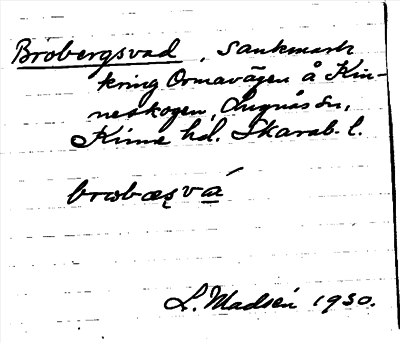 Brobergsvad, sankmark
kring Ormavägen å Kin-
neskogen, Lugnås sn,
Kinne hd. Skarab. l.
brωbæʂvá
L. Madsén 1930.